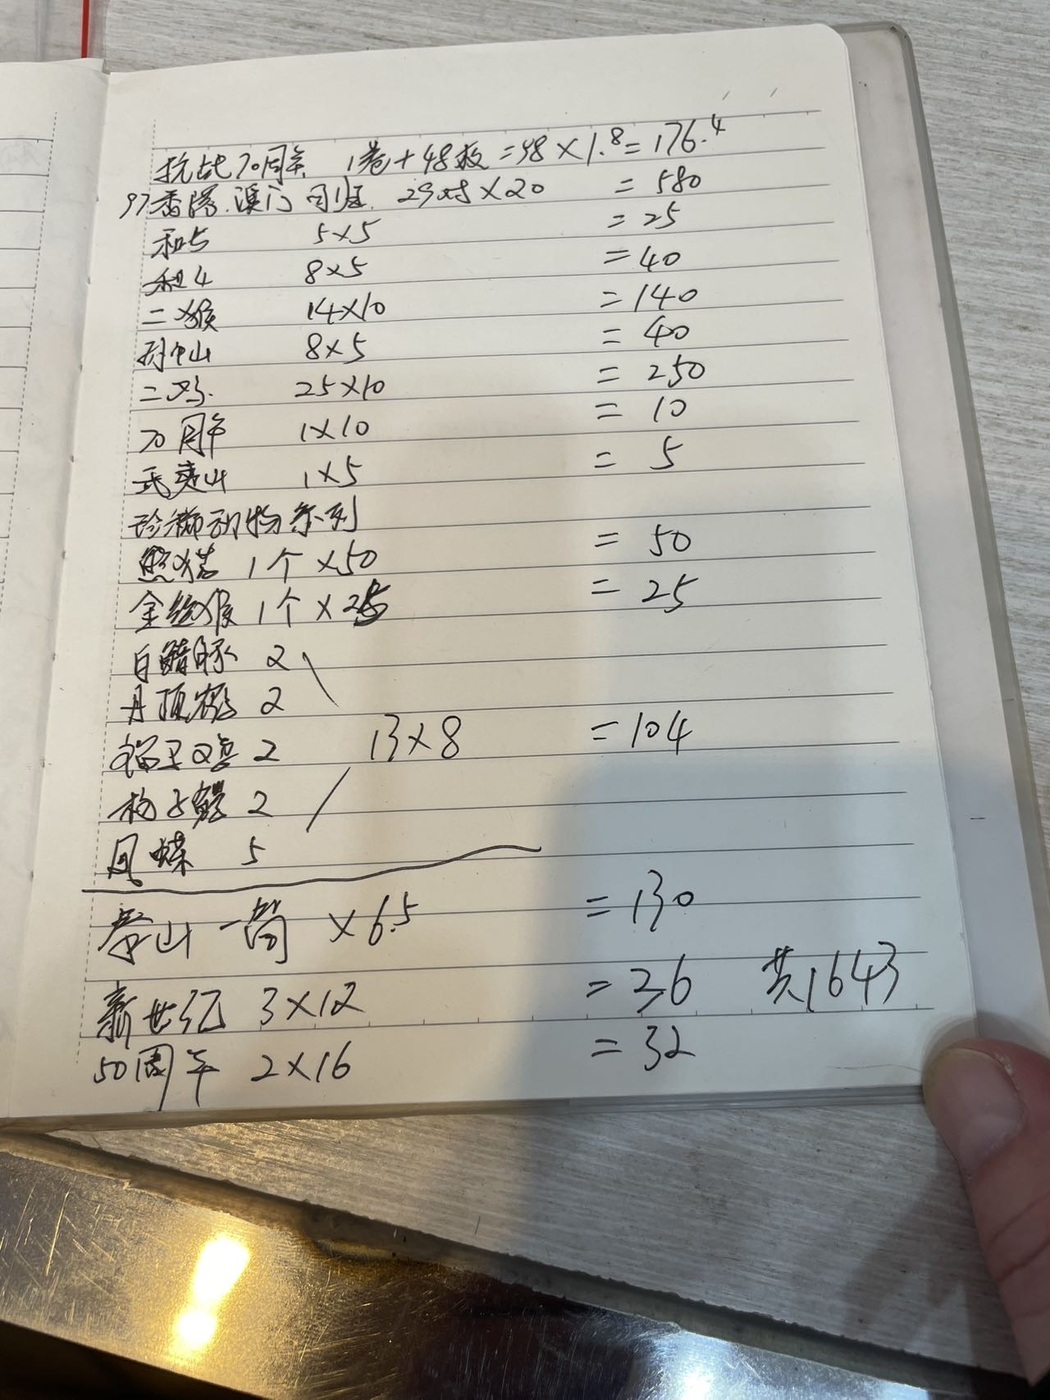 抗战70周年 1卷+48枚=98×1.8=176.4
97香港.澳门回归. 29对×20 =580
和5 5×5 =25
和4 8×5 =40
二猴 14×10 =140
孙中山 8×5 =40
二鸡. 25×10 =250
70周年 1×10 =10
武夷山 1×5 =5
珍稀动物系列
熊猫 1个×50 =50
金丝猴 1个×25 =25
白鳍豚 2
丹顶鹤 2
褐马鸡 2 13×8 =104
扬子鳄 2
凤蝶 5
泰山一筒×6.5 =130
新世纪 3×12 =36 共1643
50周年 2×16 =32